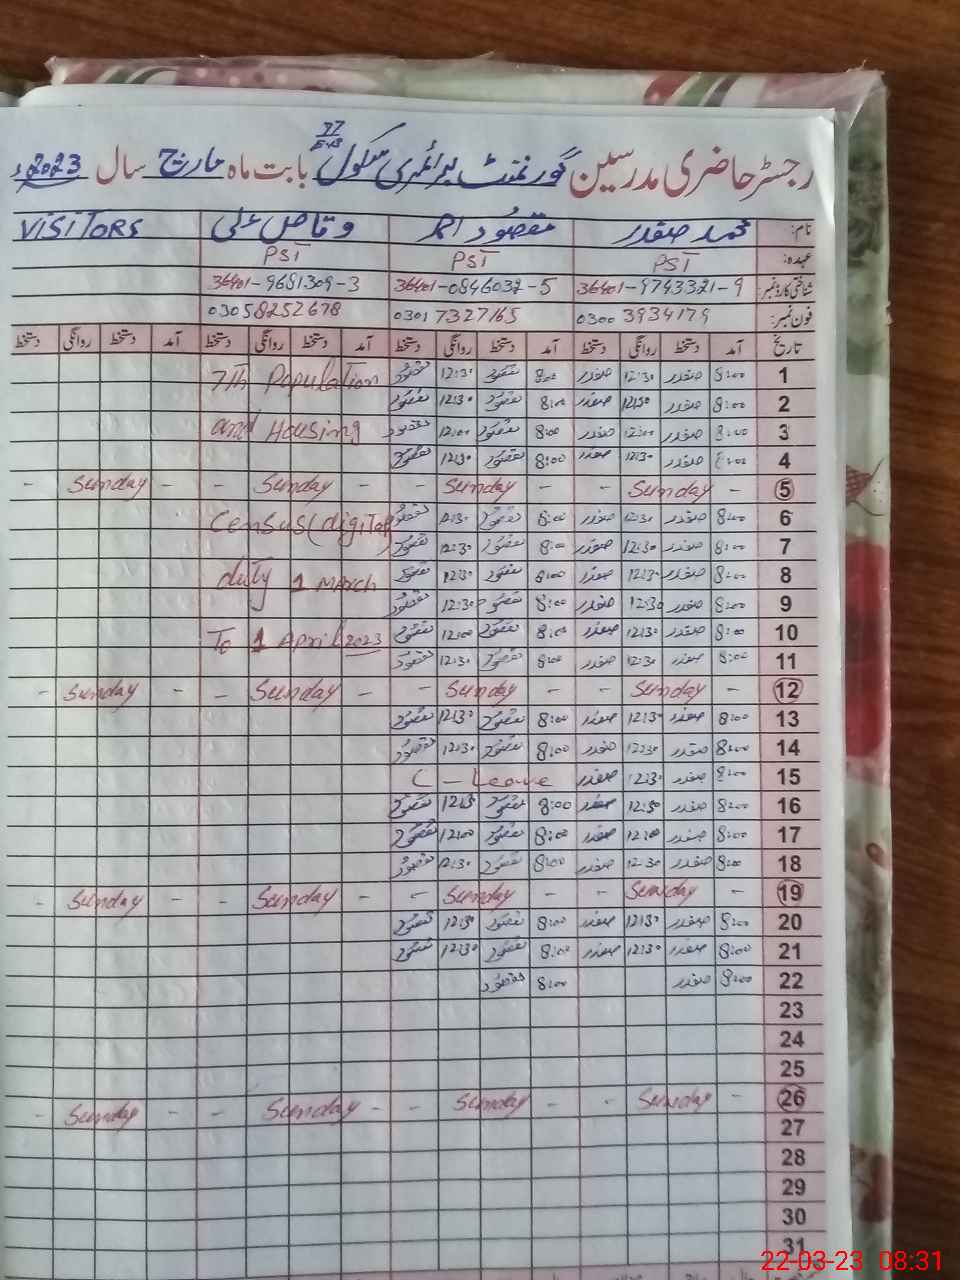 رجسٹر حاضری مدرسین گورنمنٹ پرائمری سکول 37 بابت ماہ مارچ سال 2023ء
نام: محمد صفدر مقصود احمد وقاص علی VISITORS
عہدہ: PST PST PST
شناختی کارڈ نمبر: 36401-9743321-9 36401-0846032-5 36401-9681309-3
فون نمبر: 0300 3934179 0301 7327165 03058252678
تاریخ آمد دستخط روانگی دستخط آمد دستخط روانگی دستخط آمد دستخط روانگی دستخط آمد دستخط روانگی دستخط
1 8:00 صفدر 12:30 صفدر 8:00 مقصود 12:30 مقصود 7th Population
2 8:00 صفدر 12:30 صفدر 8:00 مقصود 12:30 مقصود
3 8:00 صفدر 12:00 صفدر 8:00 مقصود 12:00 مقصود and Housing
4 8:00 صفدر 12:30 صفدر 8:00 مقصود 12:30 مقصود
5 - Sunday - - Sunday - - Sunday - - Sunday -
6 8:00 صفدر 12:30 صفدر 8:00 مقصود 12:30 مقصود Census (digital)
7 8:00 صفدر 12:30 صفدر 8:00 مقصود 12:30 مقصود
8 8:00 صفدر 12:30 صفدر 8:00 مقصود 12:30 مقصود duty 1 March
9 8:00 صفدر 12:30 صفدر 8:00 مقصود 12:30 مقصود
10 8:00 صفدر 12:30 صفدر 8:00 مقصود 12:00 مقصود To 1 April 2023
11 8:00 صفدر 12:30 صفدر 8:00 مقصود 12:30 مقصود
12 - Sunday - - Sunday - - Sunday - - Sunday -
13 8:00 صفدر 12:30 صفدر 8:00 مقصود 12:30 مقصود
14 8:00 صفدر 12:30 صفدر 8:00 مقصود 12:30 مقصود
15 8:00 صفدر 12:30 صفدر C - Leave
16 8:00 صفدر 12:30 صفدر 8:00 مقصود 12:30 مقصود
17 8:00 صفدر 12:00 صفدر 8:00 مقصود 12:00 مقصود
18 8:00 صفدر 12:30 صفدر 8:00 مقصود 12:30 مقصود
19 - Sunday - - Sunday - - Sunday - - Sunday -
20 8:00 صفدر 12:30 صفدر 8:00 مقصود 12:30 مقصود
21 8:00 صفدر 12:30 صفدر 8:00 مقصود 12:30 مقصود
22 8:00 صفدر 8:00 مقصود
23
24
25
26 - Sunday - - Sunday - - Sunday - - Sunday -
27
28
29
30
31
22-03-23 08:31